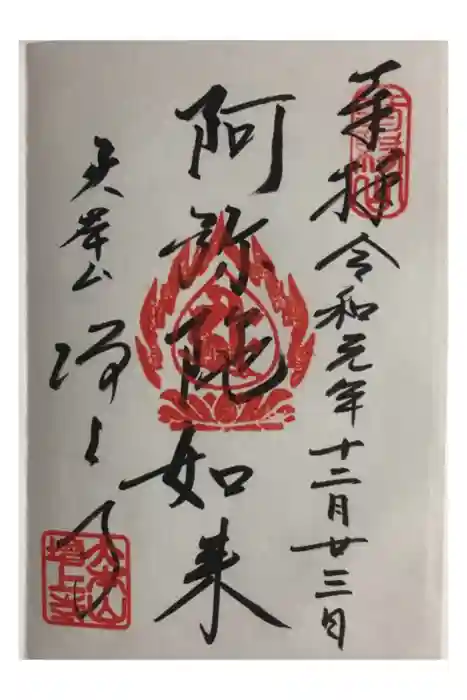 奉拝 令和元年十二月廿三日
阿弥陀如来
増上寺